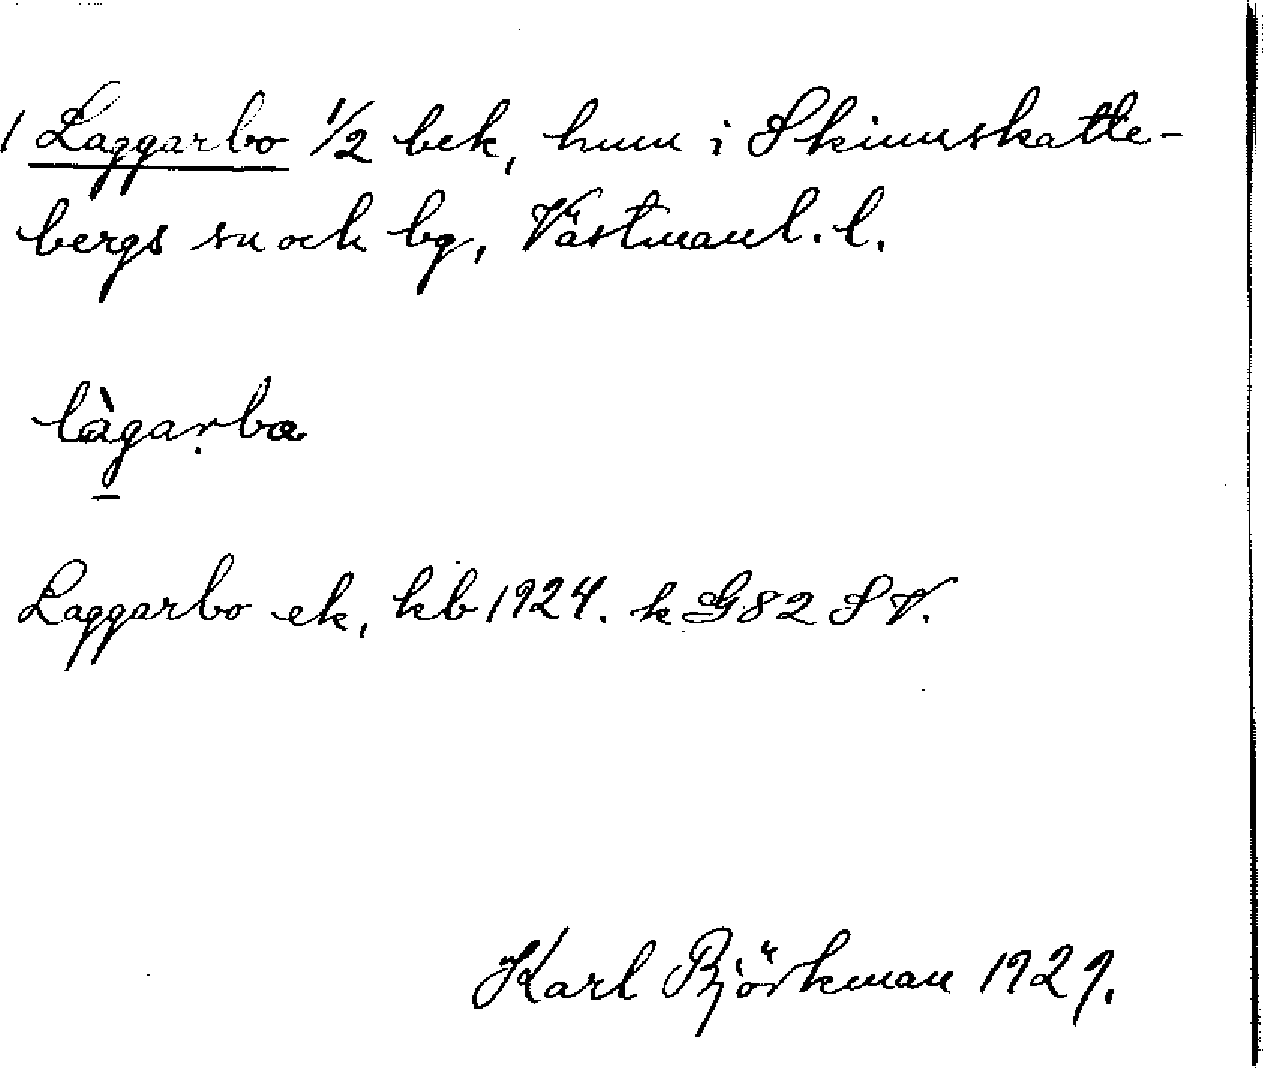 1 Laggarbo 1/2 bek, hmn i Skinnskatte-
bergs sn och bg, Västmanl. l.
làgarbo
Laggarbo ek, kb 1924. k G82 SV.
Karl Björkman 1929.